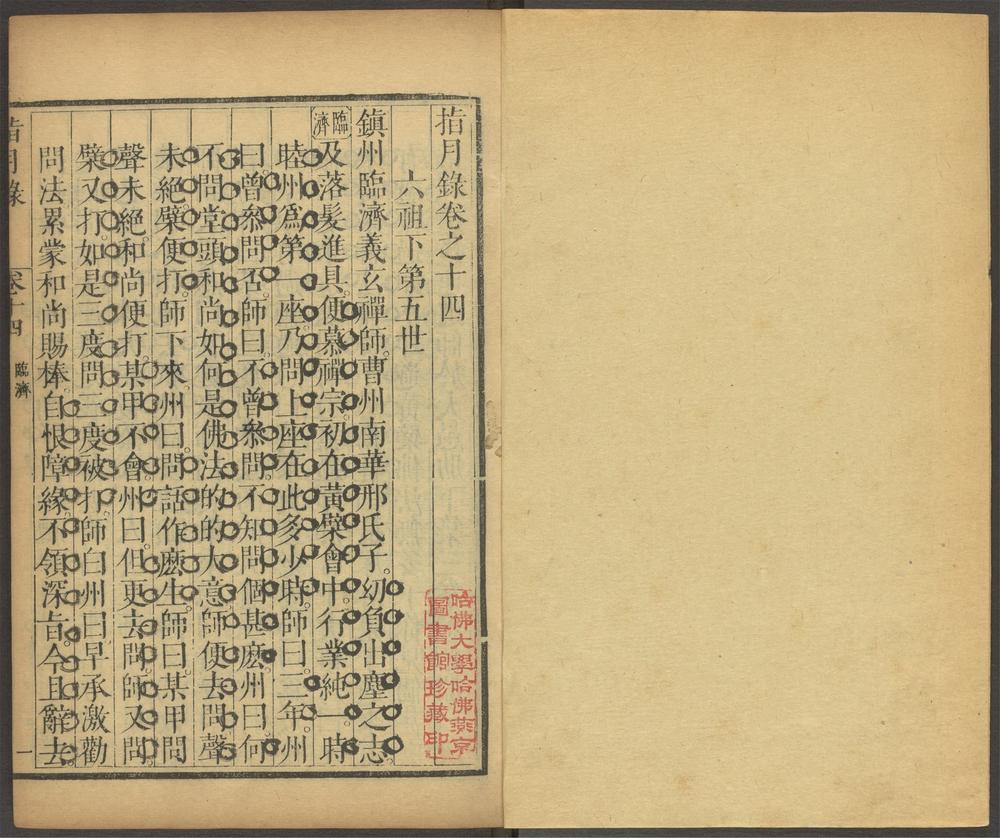 指月錄卷之十四
六祖下第五世
鎮州臨濟義玄禪師。曹州南華邢氏子。幼負出塵之志。
臨濟
及落髮進具。便慕禪宗。初在黃檗會中。行業純一。時
睦州為第一座。乃問。上座在此多少時。師曰三年。州
曰曾叅問否。師曰不曾叅問。不知問個甚麼。州曰何
不問堂頭和尚如何是佛法的的大意。師便去問。聲
未絕。檗便打。師下來。州曰問話作麼生。師曰某甲問
聲未絕。和尚便打。某甲不會。州曰但更去問。師又問。
檗又打。如是三度問。三度被打。師白州曰。早承激勸
問法。累蒙和尚賜棒。自恨障緣。不領深旨。今且辭去。
指月錄 卷十四 臨濟 一
哈佛大學哈佛燕京
圖書館珍藏印